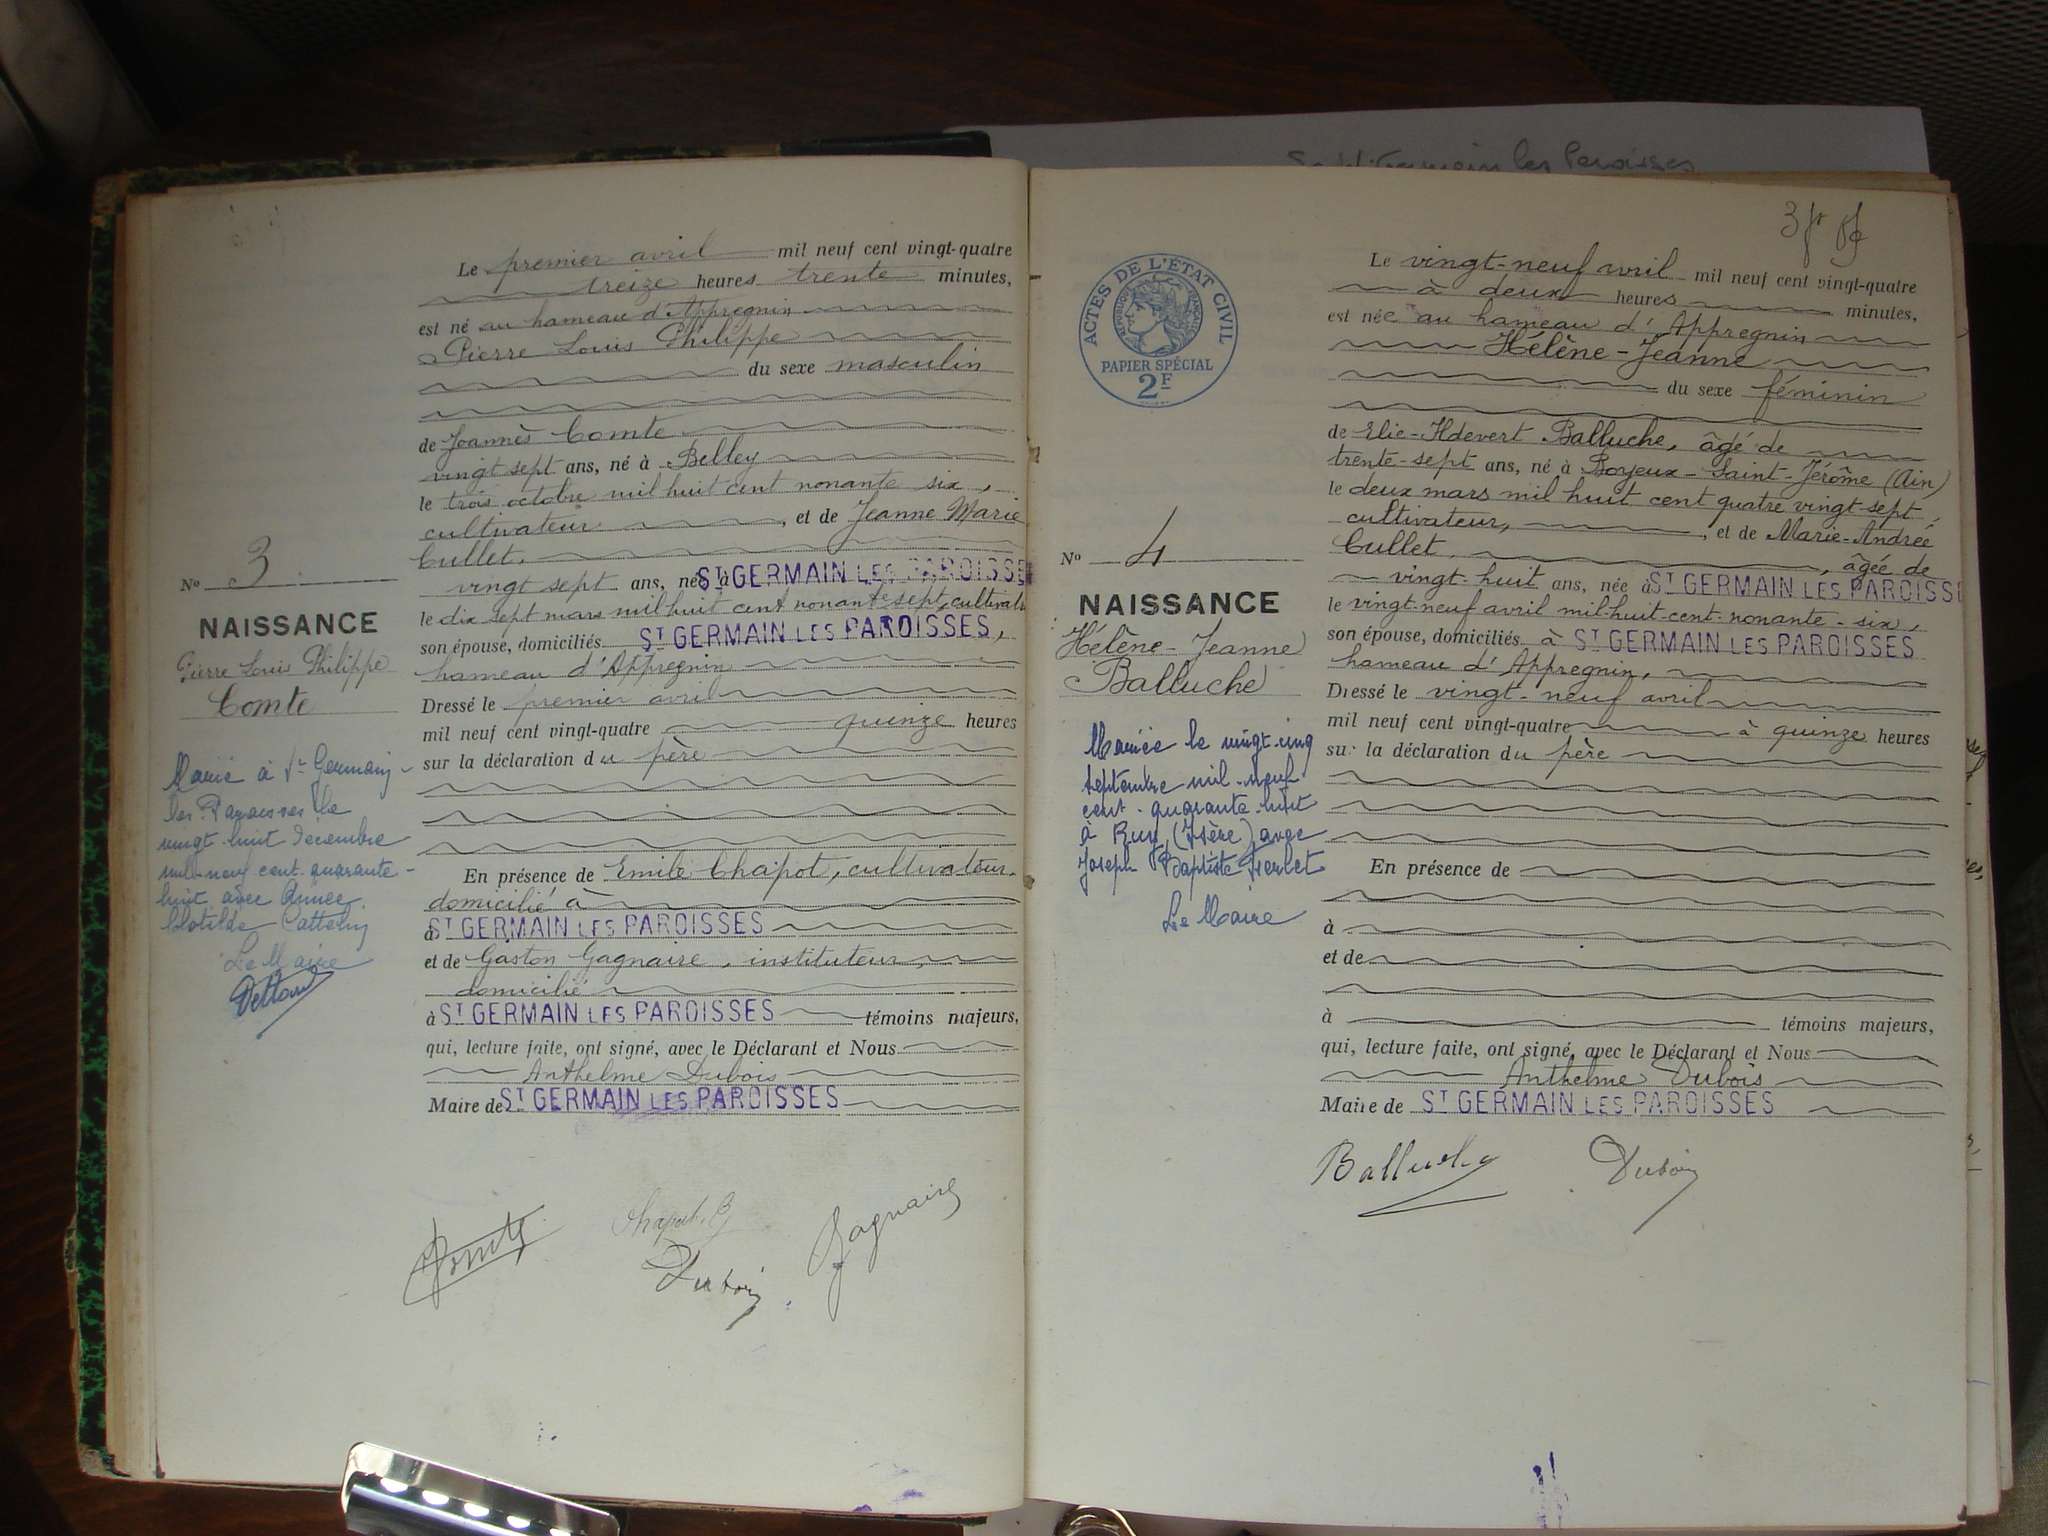 St Germain les Paroisses
Le premier avril mil neuf cent vingt-quatre
treize heures trente minutes,
est né au hameau d'Appregnin
Pierre Louis Philippe
du sexe masculin
de Joannès Comte
vingt sept ans, né à Belley
le trois octobre mil huit cent nonante six,
cultivateur, et de Jeanne Marie
Cullet,
vingt sept ans, née à ST GERMAIN LES PAROISSE
le dix sept mars mil huit cent nonante sept, cultivat
son épouse, domiciliés ST GERMAIN LES PAROISSES,
hameau d'Appregnin
Dressé le premier avril
mil neuf cent vingt-quatre quinze heures
sur la déclaration du père
En présence de Emile Chapot, cultivateur,
domicilié à
à ST GERMAIN LES PAROISSES
et de Gaston Gagnaire, instituteur,
domicilié
à ST GERMAIN LES PAROISSES témoins majeurs,
qui, lecture faite, ont signé, avec le Déclarant et Nous
Anthelme Dubois
Maire de ST GERMAIN LES PAROISSES
Comte
Chapot. E
Dubois
Gagnaire
No 3
NAISSANCE
Pierre Louis Philippe
Comte
Marié à St Germain
les Paroisses le
vingt huit décembre
mil neuf cent quarante
huit avec Aimée
Clotilde Cattelin
Le Maire
3
ACTES DE L'ÉTAT CIVIL
RÉPUBLIQUE FRANÇAISE
PAPIER SPÉCIAL
2F
Le vingt-neuf avril mil neuf cent vingt-quatre
à deux heures minutes,
est née au hameau d'Appregnin
Hélène-Jeanne
du sexe féminin
de Elie-Hdevert Balluche, âgé de
trente-sept ans, né à Boyeux-Saint-Jérôme (Ain)
le deux mars mil huit cent quatre vingt-sept,
cultivateur, et de Marie-Andrée
Cullet, âgée de
vingt-huit ans, née à ST GERMAIN LES PAROISSE
le vingt-neuf avril mil-huit-cent-nonante-six,
son épouse, domiciliés à ST GERMAIN LES PAROISSES
hameau d'Appregnin,
Dressé le vingt-neuf avril
mil neuf cent vingt-quatre à quinze heures
sur la déclaration du père
En présence de
à
et de
à témoins majeurs,
qui, lecture faite, ont signé, avec le Déclarant et Nous
Anthelme Dubois
Maire de ST GERMAIN LES PAROISSES
Balluche
Dubois
No 4
NAISSANCE
Hélène-Jeanne
Balluche
Mariée le vingt-cinq
septembre mil-neuf
cent-quarante-huit
à Ruy (Isère) avec
Joseph Baptiste
Le Maire